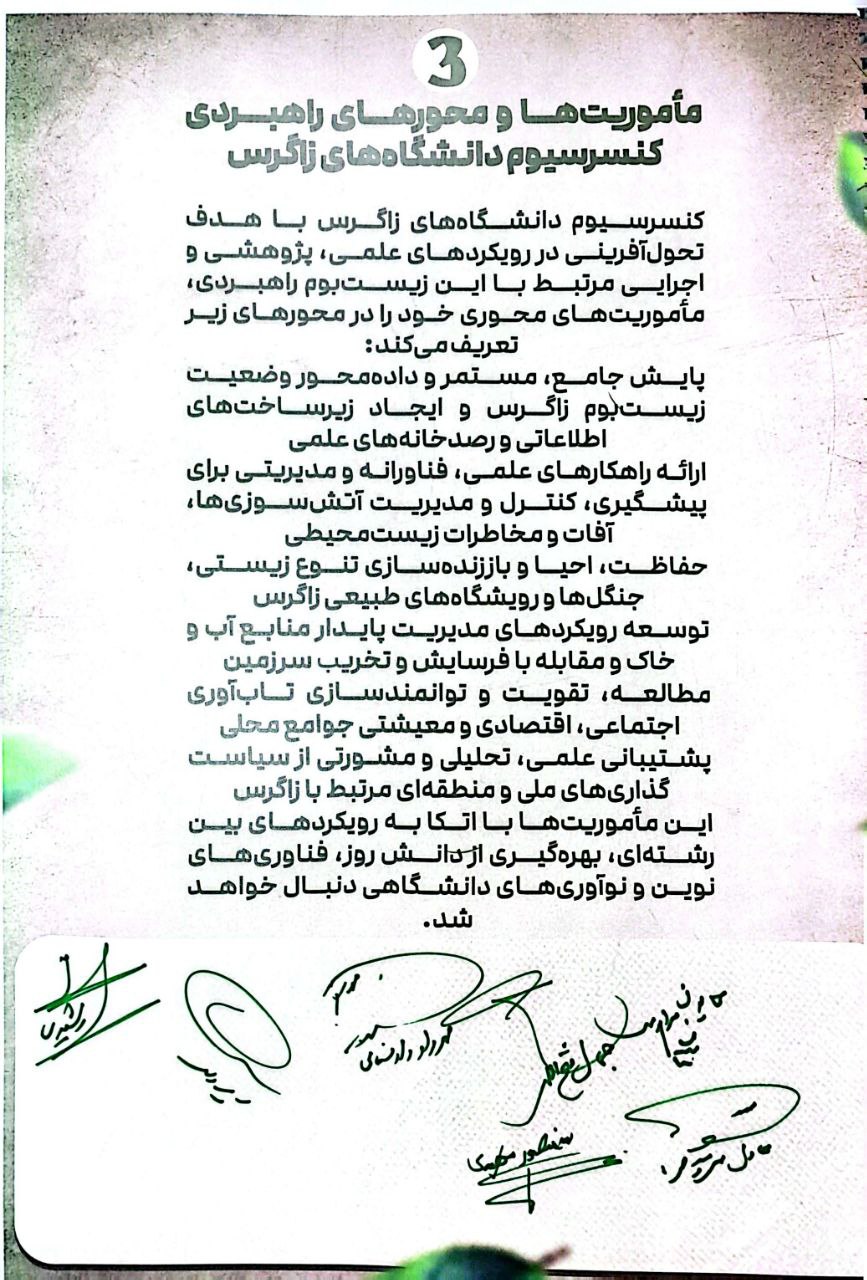 3
مأموریت‌ها و محورهای راهبردی
کنسرسیوم دانشگاه‌های زاگرس
کنسرسیوم دانشگاه‌های زاگرس با هدف
تحول‌آفرینی در رویکردهای علمی، پژوهشی و
اجرایی مرتبط با این زیست‌بوم راهبردی،
مأموریت‌های محوری خود را در محورهای زیر
تعریف می‌کند:
پایش جامع، مستمر و داده‌محور وضعیت
زیست‌بوم زاگرس و ایجاد زیرساخت‌های
اطلاعاتی و رصدخانه‌های علمی
ارائه راهکارهای علمی، فناورانه و مدیریتی برای
پیشگیری، کنترل و مدیریت آتش‌سوزی‌ها،
آفات و مخاطرات زیست‌محیطی
حفاظت، احیا و باززنده‌سازی تنوع زیستی،
جنگل‌ها و رویشگاه‌های طبیعی زاگرس
توسعه رویکردهای مدیریت پایدار منابع آب و
خاک و مقابله با فرسایش و تخریب سرزمین
مطالعه، تقویت و توانمندسازی تاب‌آوری
اجتماعی، اقتصادی و معیشتی جوامع محلی
پشتیبانی علمی، تحلیلی و مشورتی از سیاست
گذاری‌های ملی و منطقه‌ای مرتبط با زاگرس
این مأموریت‌ها با اتکا به رویکردهای بین
رشته‌ای، بهره‌گیری از دانش روز، فناوری‌های
نوین و نوآوری‌های دانشگاهی دنبال خواهد
شد.